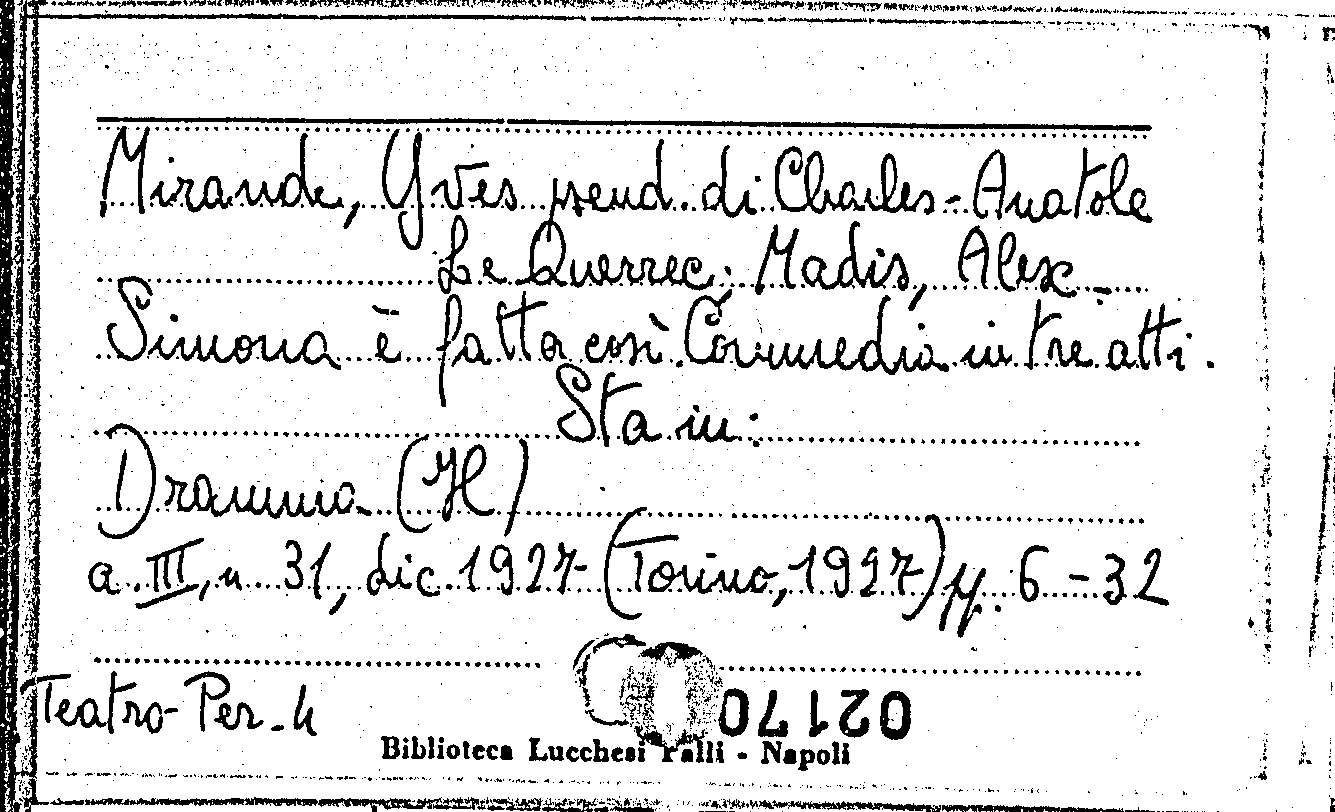 Mirande, Yves pseud. di Charles-Anatole
Le Querrec; Madis, Alex -
Simona è fatta così. Commedia in tre atti.
Sta in:
Dramma (Il)
a. III, n. 31, dic. 1927 (Torino, 1927) pp. 6-32
Teatro-Per-4
02170
Biblioteca Lucchesi Palli - Napoli